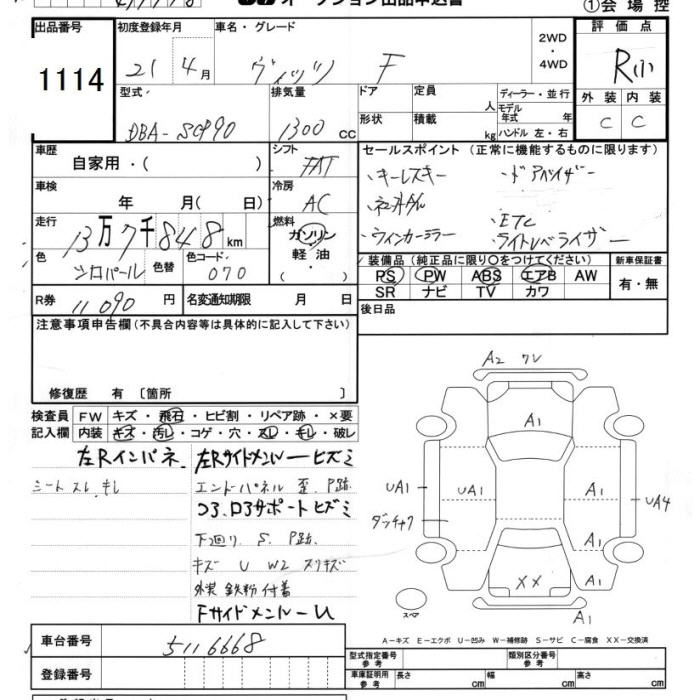 オークション出品申込書
①会場控
出品番号 初度登録年月 車名・グレード 2WD・4WD 評価点
1114 21 4月 ヴィッツ F R
型式 排気量 ドア 定員 人 ディーラー・並行 外装 内装
DBA-SCP90 1300cc 形状 積載 kg モデル年式 年 ハンドル 左・右 C C
車歴 自家用・( ) シフト FAT セールスポイント (正常に機能するものに限ります)
・キーレスキー ・ドアバイザー
車検 年 月( 日) 冷房 AC
・ETC
走行 13万7千848km 燃料 ガソリン 軽油 ・( )
・ウィンカーミラー ・ライトレベライザー
色 シロパール 色替 色コード 070
装備品 (純正品に限り○をつけてください) 新車保証書
PS PW ABS エアB AW 有・無
SR ナビ TV カワ
R券 11,090円 名変通知期限 月 日
後日品
注意事項申告欄 (不具合内容等は具体的に記入して下さい)
修復歴 有 〔箇所 〕
検査員記入欄 FW キズ・飛石・ヒビ割・リペア跡・×要
内装 キズ・汚レ・コゲ・穴・スレ・キレ・破レ
左Rインパネ 左Rサイドメンバーヒズミ
シートスレ、キレ エンドパネル 歪 P跡
コア、ロアサポートヒズミ
下廻り S P跡
キズ U W2 スリキズ
外装 鉄粉付着
Fサイドメンバー U
A2 ワレ
A1
UA1 UA1 A1 UA4
A1
XX A1
A1
スペア
A-キズ E-エクボ U-凹み W-補修跡 S-サビ C-腐食 XX-交換済
車台番号 5116668
登録番号
型式指定番号 参考 類別区分番号 参考
車庫証明用 参考 長さ cm 幅 cm 高さ cm